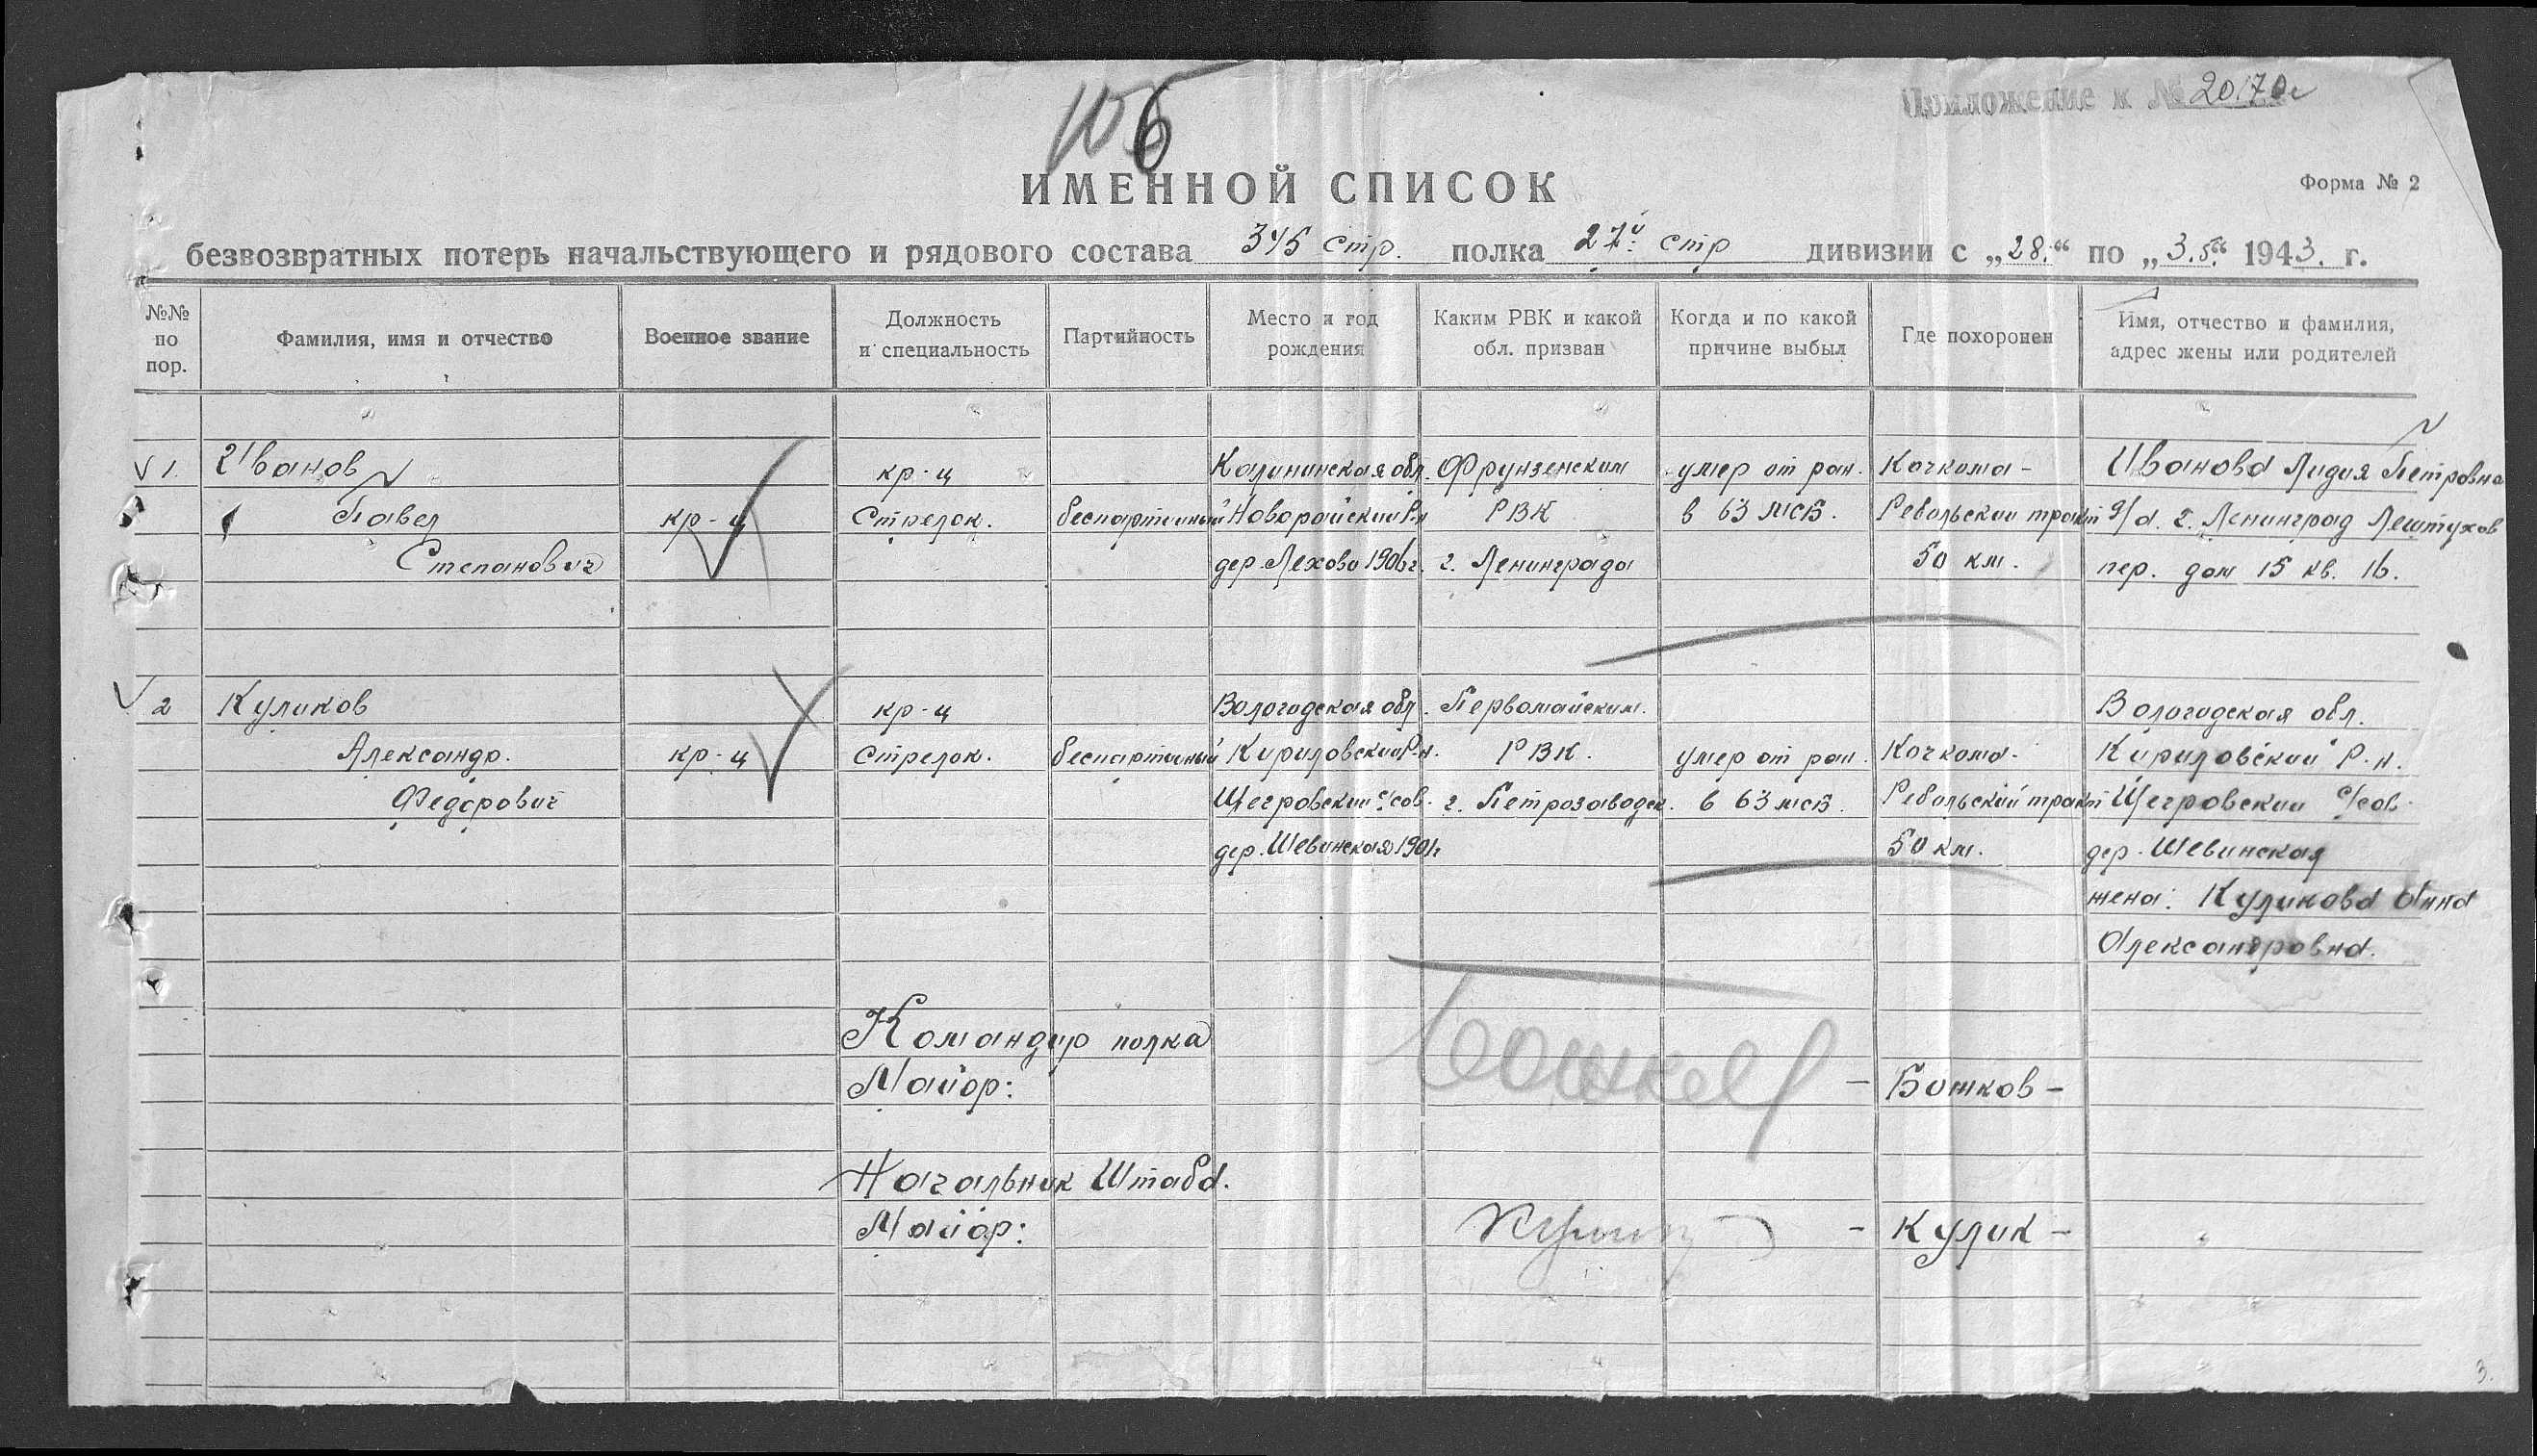 106
Приложение к № 20170с
ИМЕННОЙ СПИСОК
Форма № 2
безвозвратных потерь начальствующего и рядового состава 345 стр. полка 27й стр дивизии с „28.“ по „3.5.“ 1943. г.
№№ по пор.
Фамилия, имя и отчество
Военное звание
Должность и специальность
Партийность
Место и год рождения
Каким РВК и какой обл. призван
Когда и по какой причине выбыл
Где похоронен
Имя, отчество и фамилия, адрес жены или родителей
1. Иванов кр-ц Калининская обл. Фрунзенским умер от ран. Кочкома- Иванова Лидия Петровна
Павел кр-ц Стрелок. беспартийный Новорайский р-н РВК в 63 мсб. Ребольский тракт г. Ленинград Лештуков
Степанович дер. Лехово 1906г. г. Ленинграда 50 км. пер. дом 15 кв. 16.
2 Куликов кр-ц Вологодская обл. Первомайским. Вологодская обл.
Александр. кр-ц Стрелок. беспартийный Кириловский Р-н. РВК. умер от ран. Кочкома. Кириловский Р-н.
Федорович Щегровский с/сов. г. Петрозаводск. в 63 мсб. Ребольский тракт Щегровский с/сов.
дер. Шевинская 1901г 50 км. дер. Шевинская
жена: Куликова Анна
Александровна.
Командир полка
Майор: Божков - Божков -
Начальник Штаба.
Майор: Кулик - Кулик -
3.